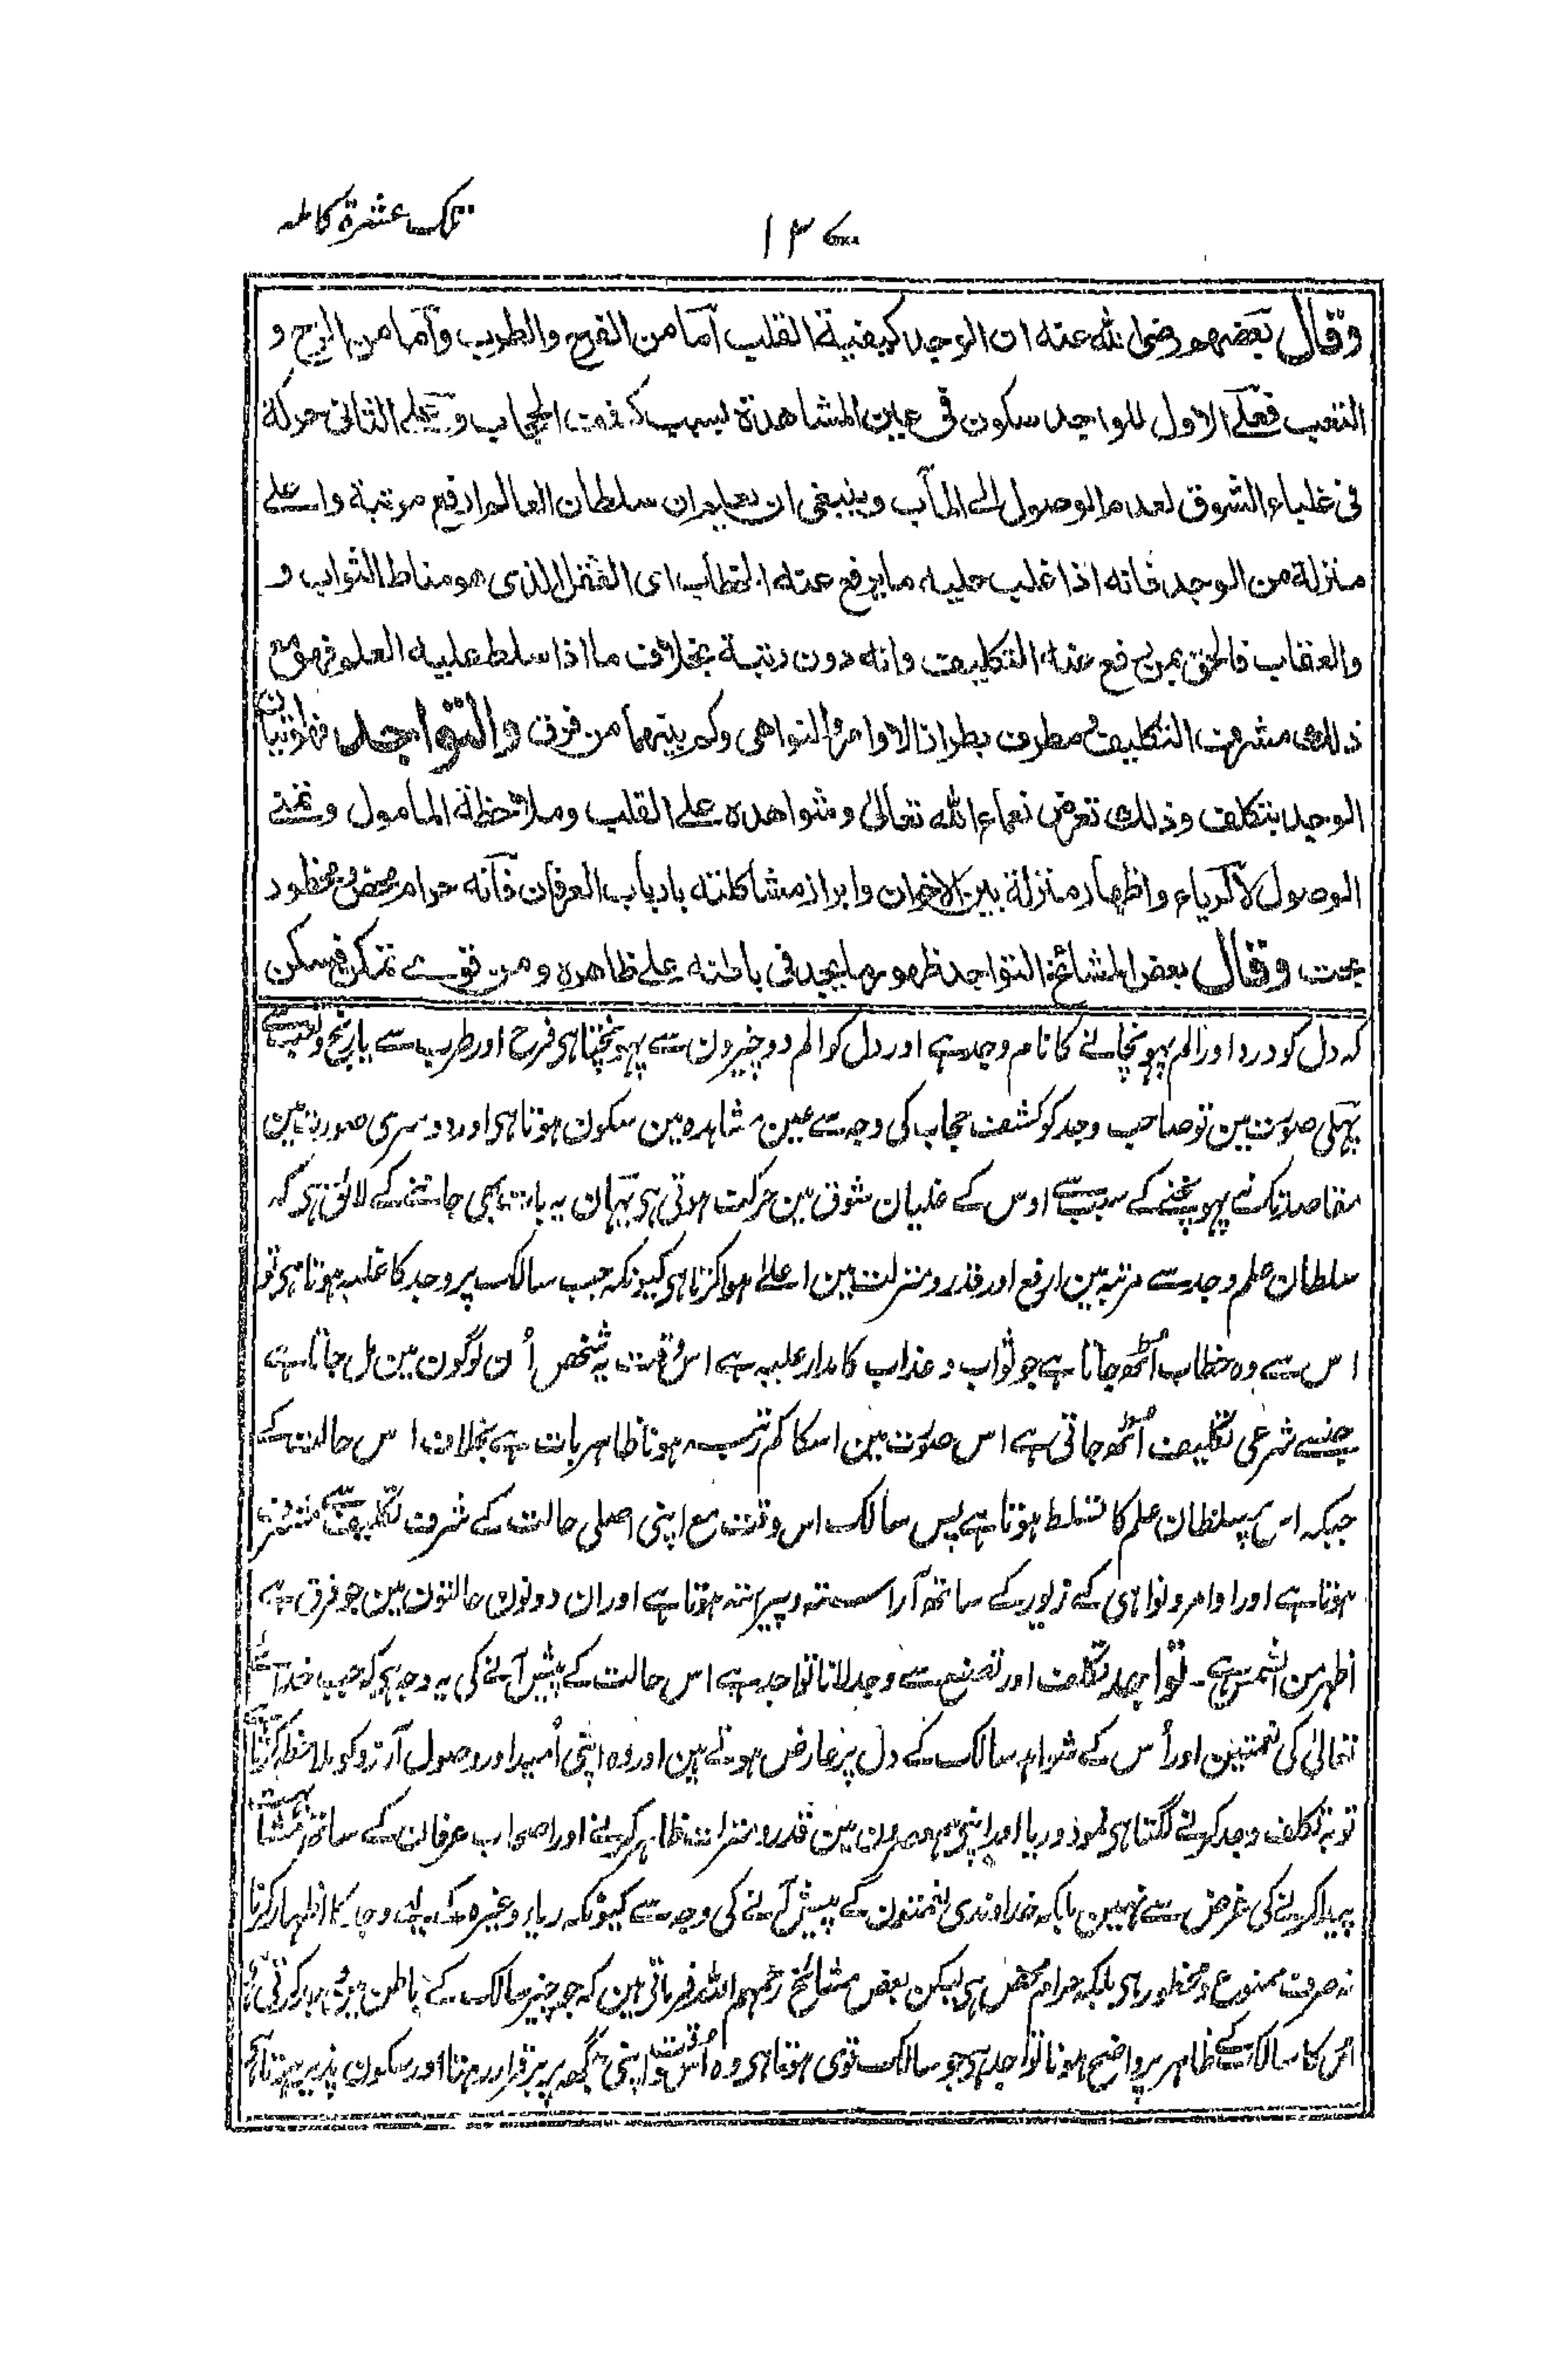 تلک عشرة کاملہ
۱۳۷
وقال بعضهم رضی الله عنه ان الوجد کیفیة القلب اما من الفرح والطرب واما من الرح و
التعب فعلے الاول للواجد سکون فی عین المشاهدة بسبب کشف الحجاب وعلے الثانی حرکة
فی غلیاء الشوق لعدم الوصول الے المآب وینبغی ان یعلم ان سلطان العالم ارفع مرتبة واعلے
منزلة من الوجد فانه اذا غلب علیه ما یرفع عنه الخطاب ای العقل الذی هو مناط الثواب و
والعقاب فالحق بمن رفع عنه التکلیف وانه دون رتبة بخلاف ما اذا سلط علیه العلم فهو مع
ذلک مشرف التکلیف مطرف بطراز الاوامر والنواهی وکم بینهما من فرق والتواجد فهو اتیان
الوجد بتکلف وذلک تعرض نعماء الله تعالی وشواهده علے القلب وملاحظة المامول وتمنے
الوصول لا کریاء واظهار منزلة بین الاخوان وابراز مشاکلته بارباب العرفان فانه حرام محض ومحظور
بحت وقال بعض المشائخ التواجد ظهور ما یجد فی باطنه علے ظاهره ومن قوے تمکن فسکن
کہ دل کو درد اور الم پہونچانے کا نام وجد ہے اور دل کو الم دو چیزون سے پہونچتا ہی فرح اور طرب سے یا رنج و تعب سے
پہلی صورت مین تو صاحب وجد کو کشف حجاب کی وجہ سے عین مشاہدہ مین سکون ہوتا ہی اور دوسری صورت مین
مقاصد تک نہ پہونچنے کے سبب سے اوس کے غلیان شوق مین حرکت ہوتی ہی یہان یہ بات بھی جاننے کے لائق ہی کہ
سلطان علم وجد سے مرتبہ مین ارفع اور قدر و منزلت مین اعلے ہوا کرتا ہی کیونکہ جب سالک پر وجد کا غلبہ ہوتا ہی تو
اس سے وہ خطاب اُٹھ جاتا ہے جو ثواب و عذاب کا مدار علیہ ہے اس وقت یہ شخص اُن لوگون مین مل جاتا ہے
جنسے شرعی تکلیف اُٹھ جاتی ہے اس صورت مین اسکا کم رتبہ ہونا ظاہر بات ہے بخلاف اس حالت کے
جبکہ اس پر سلطان علم کا تسلط ہوتا ہے پس سالک اس وقت مع اپنی اصلی حالت کے شرف تکلیف سے مشرف
ہوتا ہے اور اوامر و نواہی کے زیور کے ساتھ آراستہ و پیراستہ ہوتا ہے اور ان دونون حالتون مین جو فرق ہے
اظہر من الشمس ہے۔ تواجد تکلف اور تصنع سے وجد لانا تواجد ہے اس حالت کے پیش آنے کی یہ وجہ ہی کہ جب خدائے
تعالیٰ کی نعمتین اور اُس کے شواہد سالک کے دل پر عارض ہوتے ہین اور وہ اپنی اُمید اور وصول آرزو کو ملاحظہ کرتا
تو بہ تکلف وجد کرنے لگتا ہی نمود و ریا اور اپنی ہمعصرون مین قدر و منزلت ظاہر کرنے اور اصحاب عرفان کے ساتھ
پیدا کرنے کی غرض سے نہین بلکہ خداوندی نعمتون کے پیش آنے کی وجہ سے کیونکہ ریاء وغیرہ کے لیے وجد کا اظہار کرنا
نہ صرف ممنوع و محظور ہی بلکہ حرام محض ہی لیکن بعض مشائخ رحمہم اللہ فرماتے ہین کہ جو چیز سالک کے باطن مین
اس کا سالک کے ظاہر پر واضح ہونا تواجد ہی جو سالک قوی ہوتا ہی وہ اُس وقت اپنی جگہہ پر برقرار رہتا اور سکون پذیر ہوتا ہی